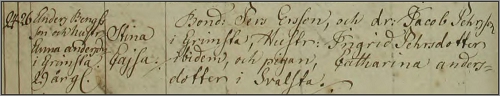 26 Anders Bengts-
son och hustr:
Anna anders
i Grimsta.
29 ång.
Stina
Cajsa:
Bond: Pers Ersson, och dr: Jacob Pehrss
i Grimsta, Hustr: Ingrid Pehrsdotter
ibidem, och pigan, Catharina anders-
dotter i Svalsta.